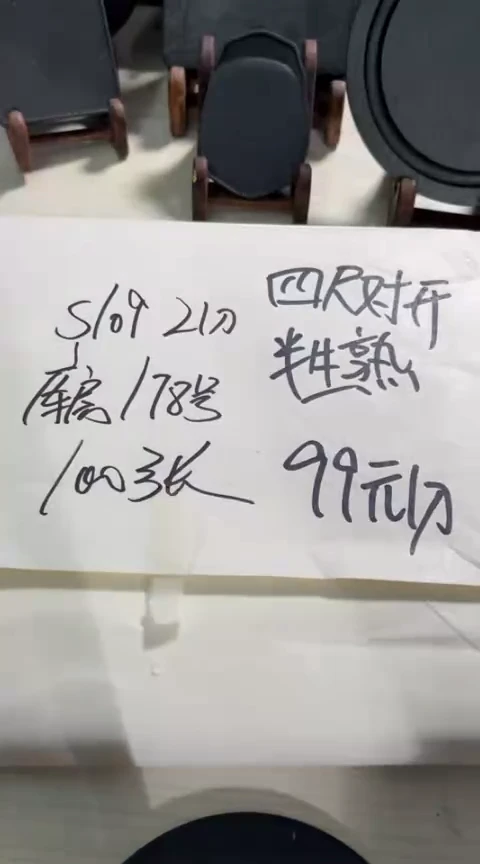 S109 21刀
库房178号
100张
四尺对开
半生熟
99元1刀